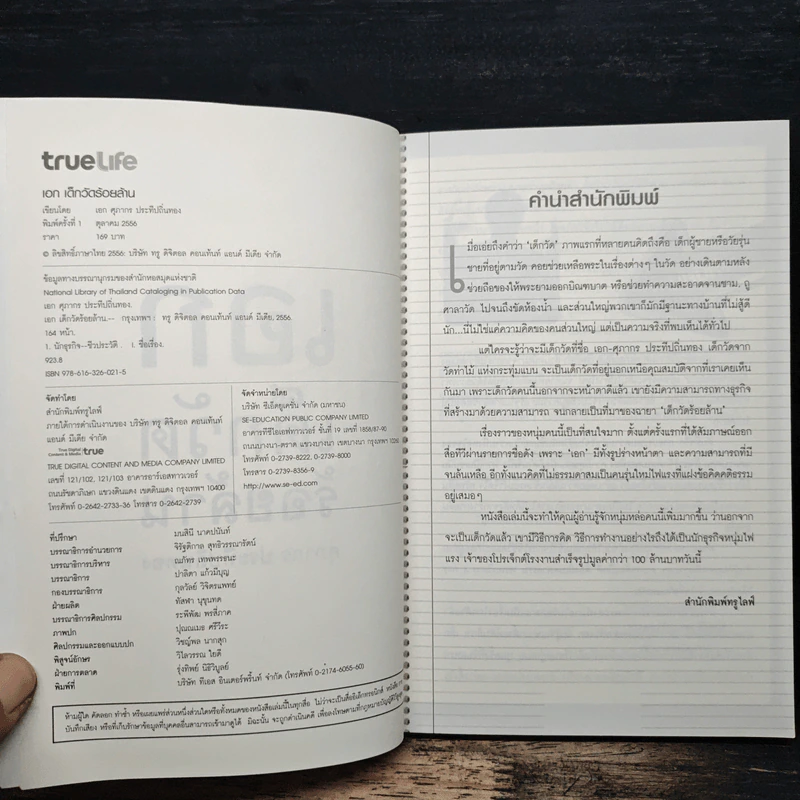 trueLife
เอก เด็กวัดร้อยล้าน
เขียนโดย เอก ศุภากร ประทีปถิ่นทอง
พิมพ์ครั้งที่ 1 ตุลาคม 2556
ราคา 169 บาท
© ลิขสิทธิ์ภาษาไทย 2556: บริษัท ทรู ดิจิตอล คอนเท้นท์ แอนด์ มีเดีย จำกัด
ข้อมูลทางบรรณานุกรมของสำนักหอสมุดแห่งชาติ
National Library of Thailand Cataloging in Publication Data
เอก ศุภากร ประทีปถิ่นทอง.
เอก เด็กวัดร้อยล้าน.-- กรุงเทพฯ : ทรู ดิจิตอล คอนเท้นท์ แอนด์ มีเดีย, 2556.
164 หน้า.
1. นักธุรกิจ--ชีวประวัติ. I. ชื่อเรื่อง.
923.8
ISBN 978-616-326-021-5
จัดทำโดย
สำนักพิมพ์ทรูไลฟ์
ภายใต้การดำเนินงานของ บริษัท ทรู ดิจิตอล คอนเท้นท์
แอนด์ มีเดีย จำกัด
True Digital Content & Media true
TRUE DIGITAL CONTENT AND MEDIA COMPANY LIMITED
เลขที่ 121/102, 121/103 อาคารอาร์เอสทาวเวอร์
ถนนรัชดาภิเษก แขวงดินแดง เขตดินแดง กรุงเทพฯ 10400
โทรศัพท์ 0-2642-2733-36 โทรสาร 0-2642-2739
จัดจำหน่ายโดย
บริษัท ซีเอ็ดยูเคชั่น จำกัด (มหาชน)
SE-EDUCATION PUBLIC COMPANY LIMITED
อาคารทีซีไอเอฟทาวเวอร์ ชั้นที่ 19 เลขที่ 1858/87-90
ถนนบางนา-ตราด แขวงบางนา เขตบางนา กรุงเทพฯ 10260
โทรศัพท์ 0-2739-8222, 0-2739-8000
โทรสาร 0-2739-8356-9
http://www.se-ed.com
ที่ปรึกษา มนสินี นาคปนันท์
บรรณาธิการอำนวยการ จิรัฐติกาล สุทธิวรรณารัตน์
บรรณาธิการบริหาร ณภัทร เทพพรรธนะ
บรรณาธิการ ปาลิดา แก้วมีบุญ
กองบรรณาธิการ กุลวัลย์ วิจิตรแพทย์
ฝ่ายผลิต ทัสฟา นุขุนทด
บรรณาธิการศิลปกรรม ระพีพัฒ พรสี่ภาค
ภาพปก ปุณณเมธ ศรีวีระ
ศิลปกรรมและออกแบบปก วิชญ์พล นาถสุก
พิสูจน์อักษร วิไลวรรณ ใยดี
ฝ่ายการตลาด รุ่งทิพย์ นิธิวิบูลย์
พิมพ์ที่ บริษัท ทีเอส อินเตอร์พริ้นท์ จำกัด (โทรศัพท์ 0-2174-6055-60)
ห้ามผู้ใด คัดลอก ทำซ้ำ หรือเผยแพร่ส่วนหนึ่งส่วนใดหรือทั้งหมดของหนังสือเล่มนี้ในทุกสื่อ ไม่ว่าจะเป็นสื่ออิเล็กทรอนิกส์
บันทึกเสียง หรือที่เก็บรักษาข้อมูลที่บุคคลอื่นสามารถเข้ามาดูได้ มิฉะนั้น จะถูกดำเนินคดี เพื่อลงโทษตามที่กฎหมายบัญญัติ
คำนำสำนักพิมพ์
เมื่อเอ่ยถึงคำว่า ‘เด็กวัด’ ภาพแรกที่หลายคนคิดถึงคือ เด็กผู้ชายหรือวัยรุ่น
ชายที่อยู่ตามวัด คอยช่วยเหลือพระในเรื่องต่างๆ ในวัด อย่างเดินตามหลัง
ช่วยถือของให้พระยามออกบิณฑบาต หรือช่วยทำความสะอาดจานชาม, ถู
ศาลาวัด ไปจนถึงขัดห้องน้ำ และส่วนใหญ่พวกเขาก็มักมีฐานะทางบ้านที่ไม่สู้ดี
นัก...นี่ไม่ใช่แค่ความคิดของคนส่วนใหญ่ แต่เป็นความจริงที่พบเห็นได้ทั่วไป
แต่ใครจะรู้ว่าจะมีเด็กวัดที่ชื่อ เอก-ศุภากร ประทีปถิ่นทอง เด็กวัดจาก
วัดท่าไม้ แห่งกระทุ่มแบน จะเป็นเด็กวัดที่อยู่นอกเหนือคุณสมบัติจากที่เราเคยเห็น
กันมา เพราะเด็กวัดคนนี้นอกจากจะหน้าตาดีแล้ว เขายังมีความสามารถทางธุรกิจ
ที่สร้างมาด้วยความสามารถ จนกลายเป็นที่มาของฉายา ‘เด็กวัดร้อยล้าน’
เรื่องราวของหนุ่มคนนี้เป็นที่สนใจมาก ตั้งแต่ครั้งแรกที่ได้สัมภาษณ์ออก
สื่อทีวีผ่านรายการชื่อดัง เพราะ ‘เอก’ มีทั้งรูปร่างหน้าตา และความสามารถที่มี
จนล้นเหลือ อีกทั้งแนวคิดที่ไม่ธรรมดาสมเป็นคนรุ่นใหม่ไฟแรงที่แฝงข้อคิดคติธรรม
อยู่เสมอๆ
หนังสือเล่มนี้จะทำให้คุณผู้อ่านรู้จักหนุ่มหล่อคนนี้เพิ่มมากขึ้น ว่านอกจาก
จะเป็นเด็กวัดแล้ว เขามีวิธีการคิด วิธีการทำงานอย่างไรถึงได้เป็นนักธุรกิจหนุ่มไฟ
แรง เจ้าของโปรเจ็กต์โรงงานสำเร็จรูปมูลค่ากว่า 100 ล้านบาทวันนี้
สำนักพิมพ์ทรูไลฟ์